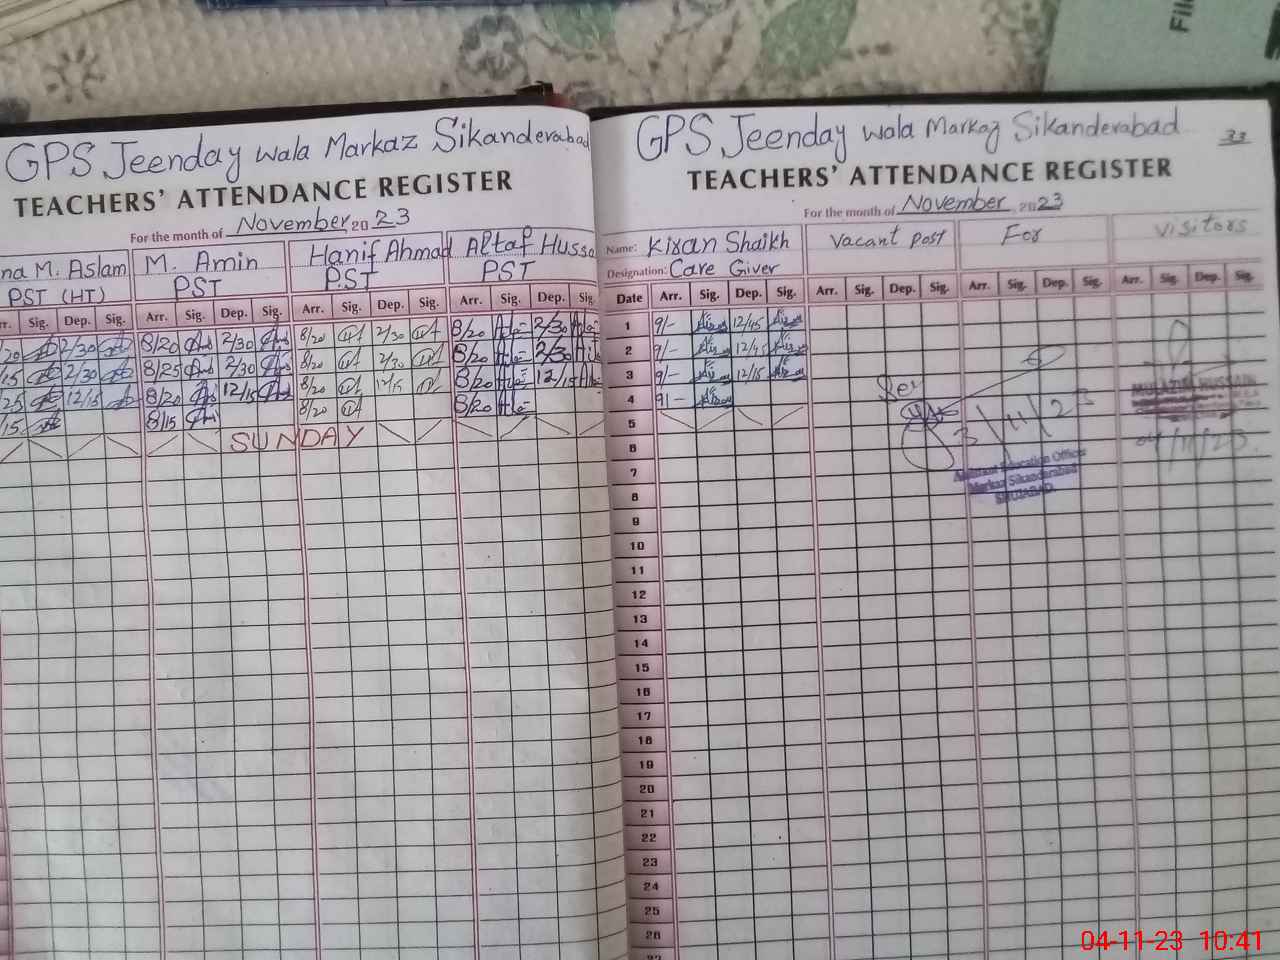 File
GPS Jeenday wala Markaz Sikanderabad
TEACHERS' ATTENDANCE REGISTER
For the month of November, 2023
na M. Aslam M. Amin Hanif Ahmad Altaf Hussa
PST (HT) PST PST PST
rr. Sig. Dep. Sig. Arr. Sig. Dep. Sig. Arr. Sig. Dep. Sig. Arr. Sig. Dep. Sig.
/20 2/30 8/20 2/30 8/20 2/30 8/20 2/30
/15 2/30 8/25 2/30 8/20 2/30 8/20 2/30
/25 12/15 8/20 12/15 8/20 12/15 8/20 12/15
/15 8/15 8/20 8/20
SUNDAY
GPS Jeenday wala Markaz Sikanderabad 33
TEACHERS' ATTENDANCE REGISTER
For the month of November 2023
Name: Kiran Shaikh Vacant Post For Visitors
Designation: Care Giver
Date Arr. Sig. Dep. Sig. Arr. Sig. Dep. Sig. Arr. Sig. Dep. Sig. Arr. Sig. Dep. Sig.
1 9/- 12/45
2 9/- 12/45
3 9/- 12/15
4 9/-
5
6
7
8
9
10
11
12
13
14
15
16
17
18
19
20
21
22
23
24
25
26
27
3/11/23
Assistant Education Officer
Markaz Sikanderabad
SHUJABAD
HUSSAIN
04/11/23
04-11-23 10:41